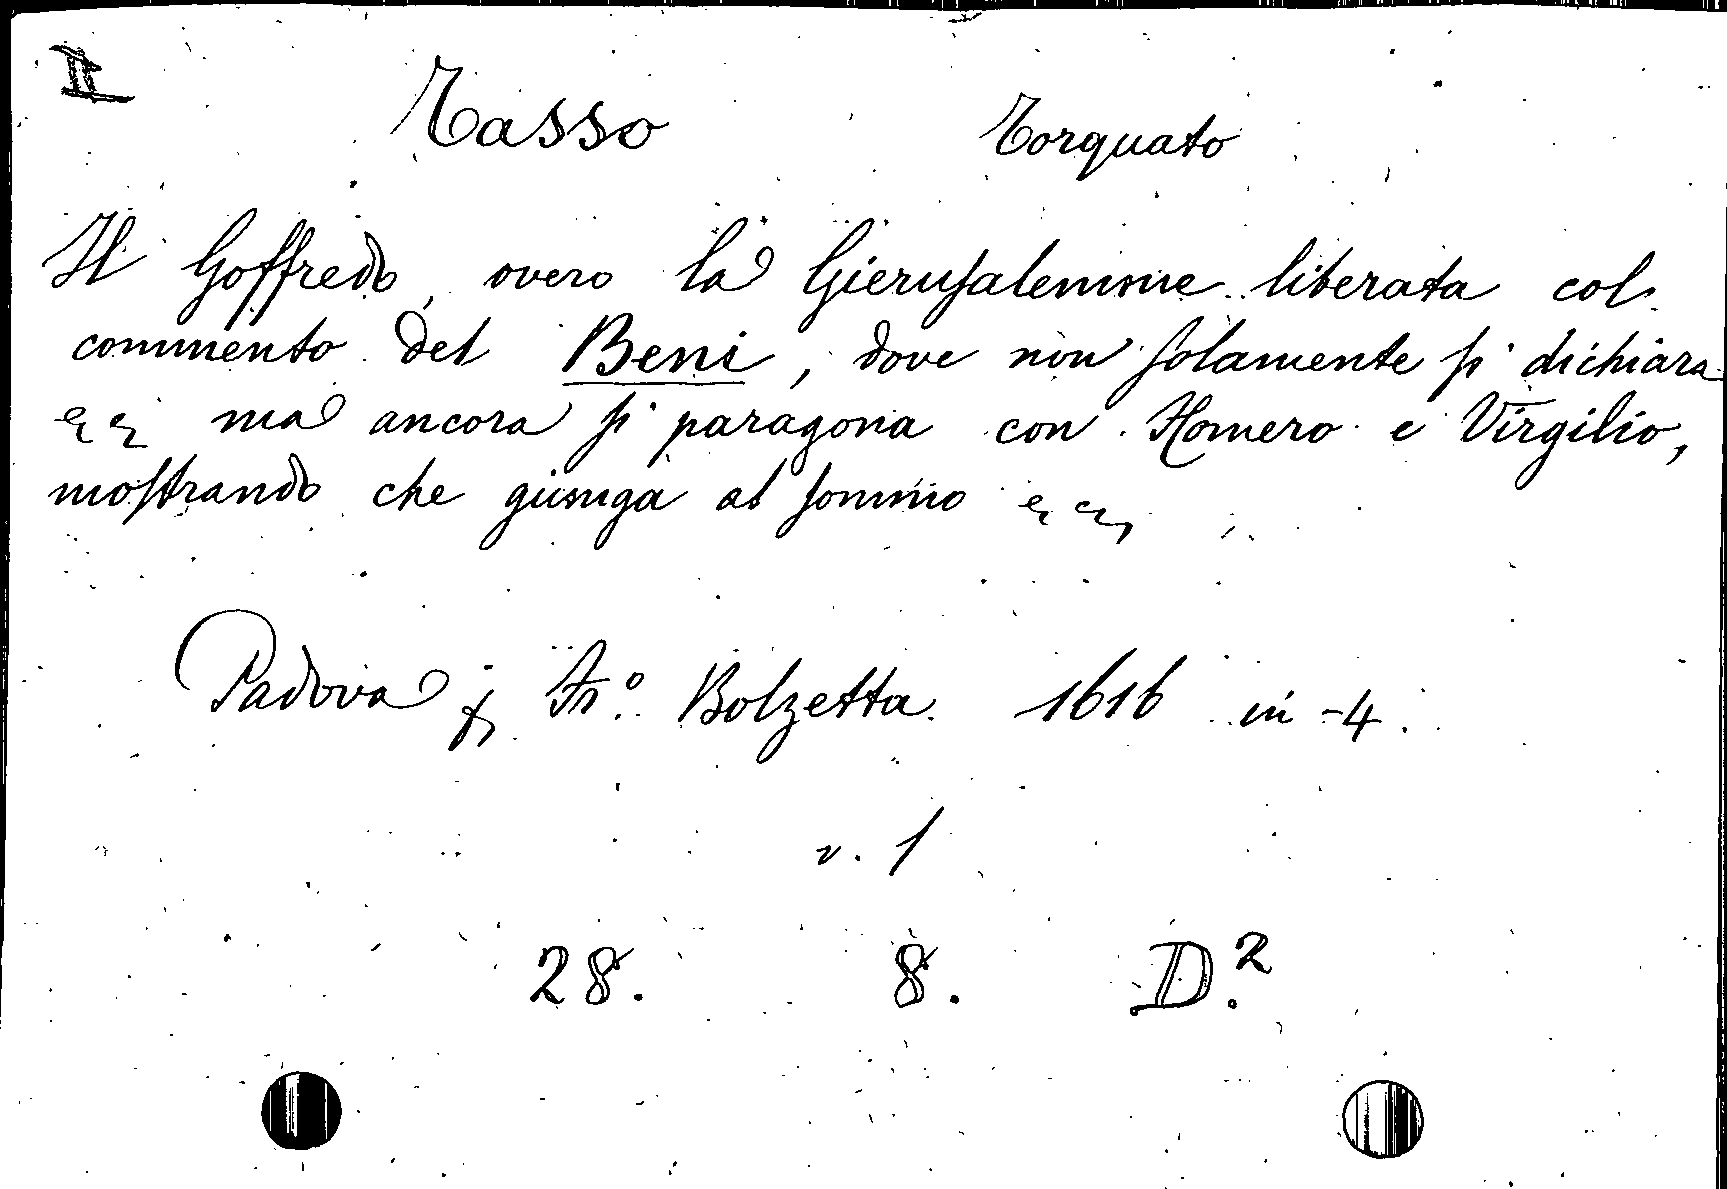 II
Tasso Torquato
Il Goffredo, overo la Gieruſalemme liberata col
commento del Beni, dove non ſolamente ſi dichiara
ec ec ma ancora ſi paragona con Homero e Virgilio,
moſtrando che giunga al ſommo ec ec,
Padova p Frº. Bolzetta. 1616 in-4.
v. 1
28. 8. D.²